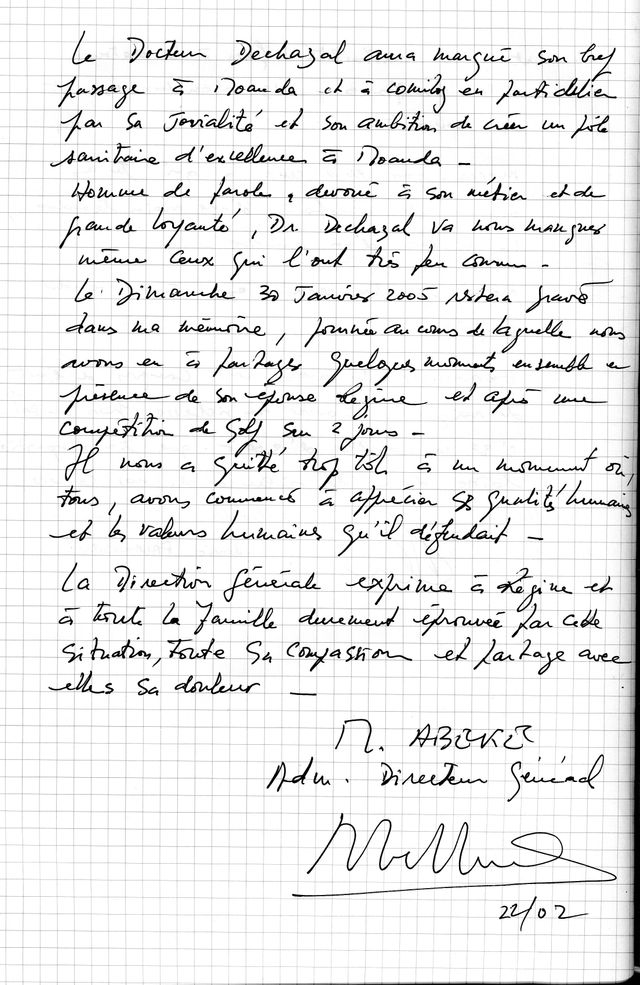 Le Docteur Dechazal aura marqué son bref
passage à Moanda et à comilog en particulier
par sa Jovialité et son ambition de créer un pôle
sanitaire d'excellence à Moanda -
Homme de parole, devoué à son métier et de
grande loyauté, Dr. Dechazal va nous manquer
même ceux qui l'ont très peu connu -
Le Dimanche 30 Janvier 2005 restera gravé
dans ma mémoire, journée au cours de laquelle nous
avons eu à partager quelques moments ensemble en
présence de son épouse Régine et après une
compétition de Golf sur 2 jours -
Il nous a quitté trop tôt à un moment où,
tous, avons commencé à apprécier ses qualités humaines
et les valeurs humaines qu'il défendait -
La Direction Générale exprime à Régine et
à toute la famille durement éprouvée par cette
situation, toute sa compassion et partage avec
elles sa douleur -
M. ABEKE
Adm. Directeur Général
22/02